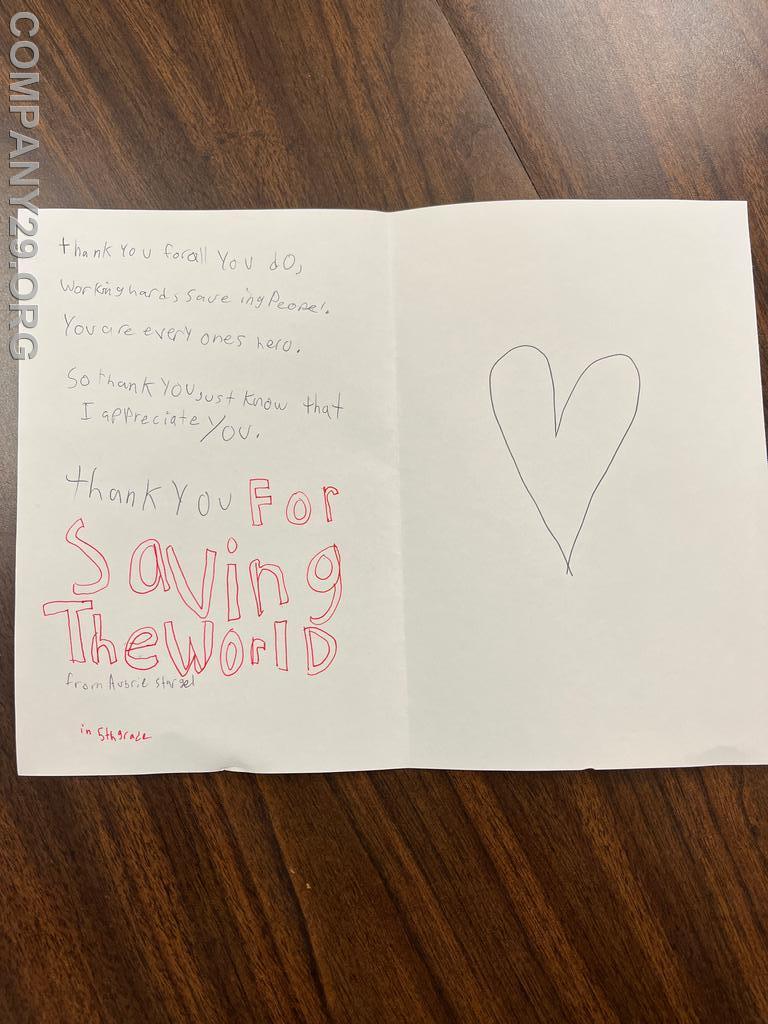 COMPANY29.ORG
thank you for all you do,
working hard, saveing Peopel.
You are every ones hero.
So thank you, just know that
I appreciate you.
thank you For
Saving
The World
from Aubrie
in 5th grade